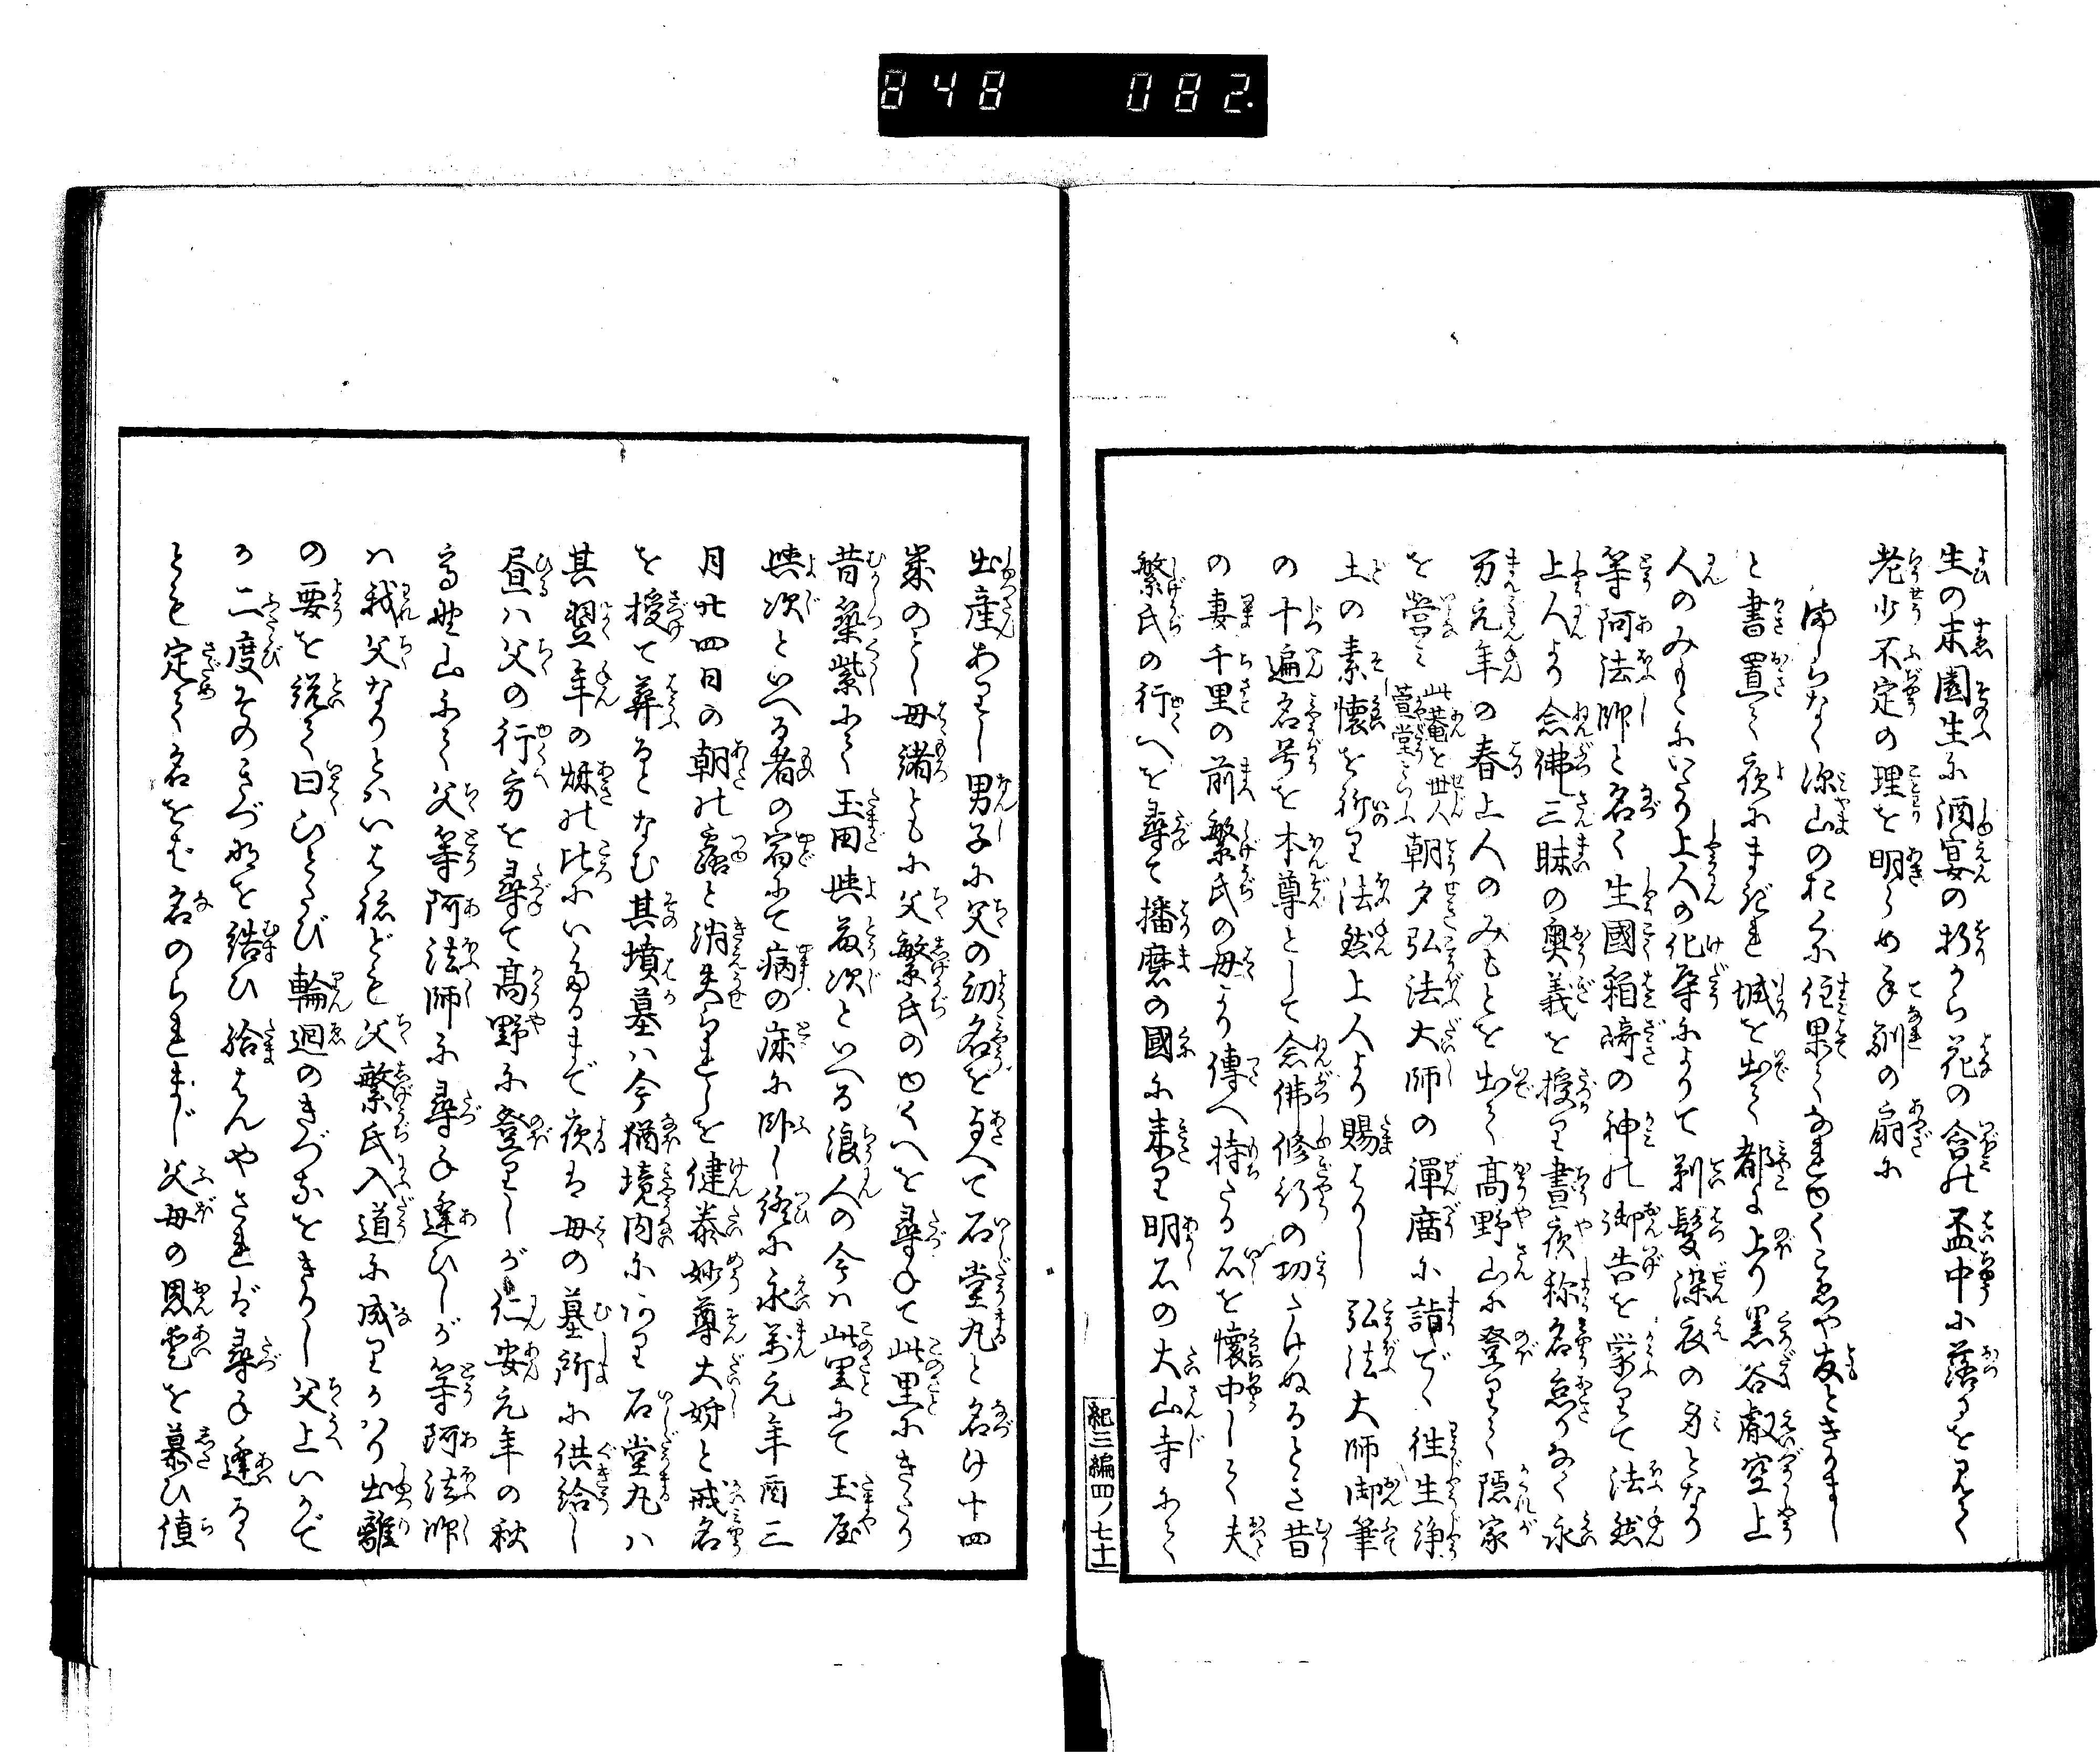 848 082.
生の末園生に酒宴の折から花の含の盃中に落るを見て
老少不定の理を明らめ手馴の扇に
ましらなく深山のおくに住果てなれゆくこゑや友ときかまし
と書置て夜にまぎれ城を出て都に上り黒谷叡空上
人のみもとにいたり上人の化導によりて剃髪染衣の身となり
等阿法師と名く生國箱﨑の神の御告を蒙りて法然
上人より念佛三昧の奥義を授り晝夜称名怠りなく永
万元年の春上人のみもとを出て高野山に登りて隠家
を営み 此菴を世人萱堂といふ 朝夕弘法大師の禪窟に詣で往生浄
土の素懐を祈り法然上人より賜はりし弘法大師御筆
の十遍名号を本尊として念佛修行の功たけぬるとき昔
の妻千里の前繁氏の母より傳へ持たる石を懐中して夫
繁氏の行へを尋て播磨の國に来り明石の大山寺にて
紀三編四ノ七十一
出産ありし男子に父の幼名を与へて石堂丸と名け十四
歳のとし母諸ともに父繁氏のゆくへを尋ねて此里にきたり
昔築紫にて玉田與藤次といへる浪人の今ハ此里にて玉屋
與次といへる者の宿にて病の床に臥し終に永萬元年酉三
月廿四日の朝の露と消失られしを健泰妙尊大姉と戒名
を授て葬るとなむ其墳墓ハ今猶境内にあり石堂丸ハ
其翌年の秋の比にいたるまで夜は母の墓所に供給し
昼ハ父の行方を尋て高野に登りしが仁安元年の秋
高野山にて父等阿法師に尋ね逢ひしが等阿法師
ハ我父なりとハいはねども父繁氏入道に成りかハり出離
の要を説て曰ひとたび輪廻のきづなをきりし父上いかで
か二度そのきづなを結ひ給はんやされば尋ね逢るく
とも定て名をば名のられまじ父母の恩愛を慕ひ值